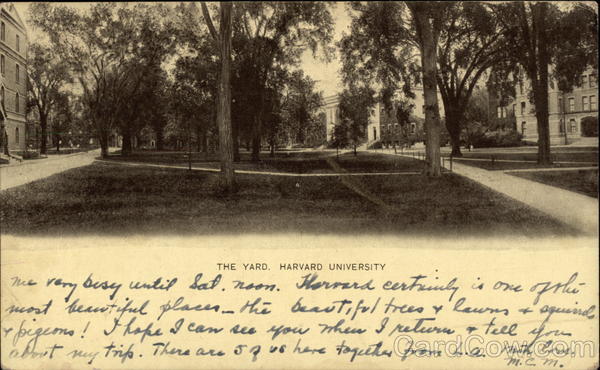 THE YARD. HARVARD UNIVERSITY
me very busy until Sat. noon. Harvard certainly is one of the
most beautiful places — the beautiful trees & lawns & squirrels
& pigeons! I hope I can see you when I return & tell you
about my trip. There are 5 of us here together from L.A. With Love.
M.E.M.
CardCow.com